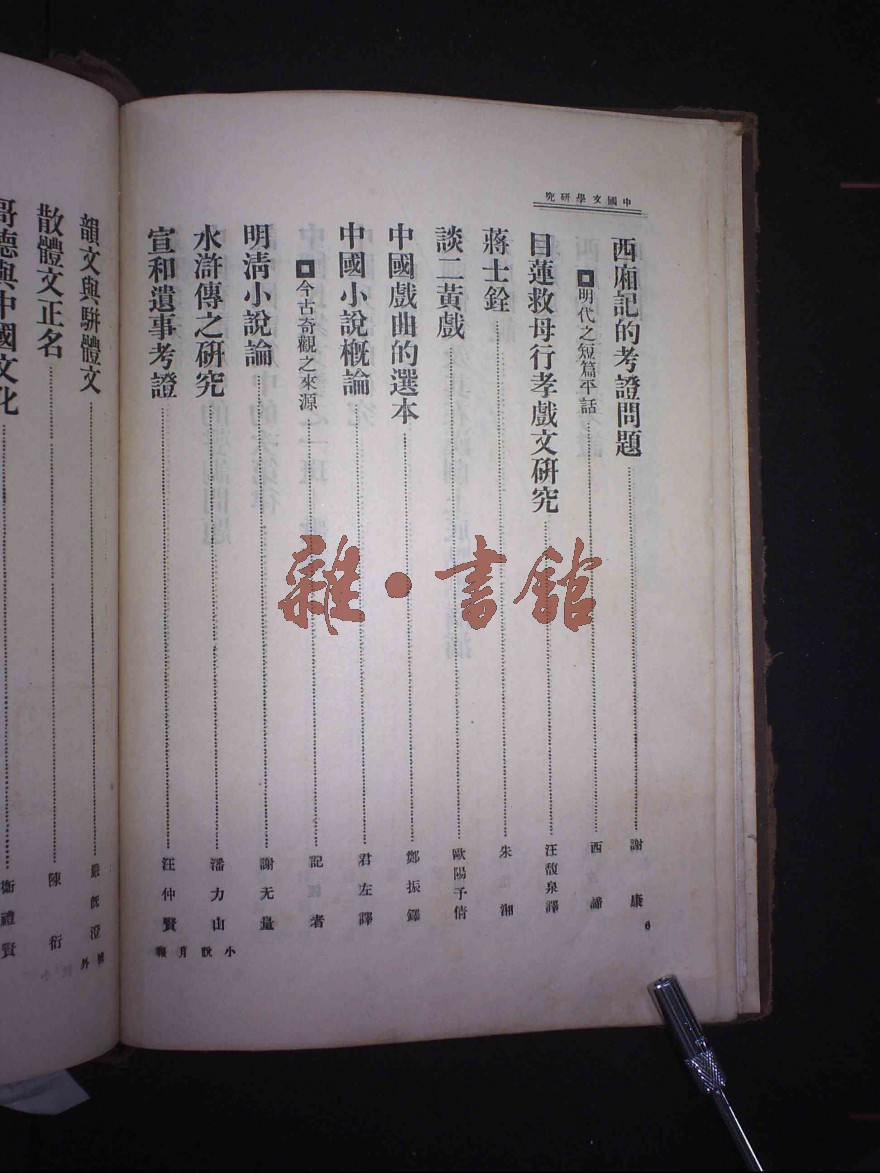 中國文學研究
西廂記的考證問題 謝康
6
■明代之短篇平話 西諦
目蓮救母行孝戲文研究 汪馥泉譯
蔣士銓 朱湘
談二黃戲 歐陽予倩
中國戲曲的選本 鄭振鐸
中國小說概論 君左譯
■今古奇觀之來源 記者
明清小說論 謝无量
水滸傳之研究 潘力山
宣和遺事考證 汪仲賢
小說月報
韻文與駢體文 嚴既澄
散體文正名 陳衍
哥德與中國文化 衛禮賢
號外
雜·書館